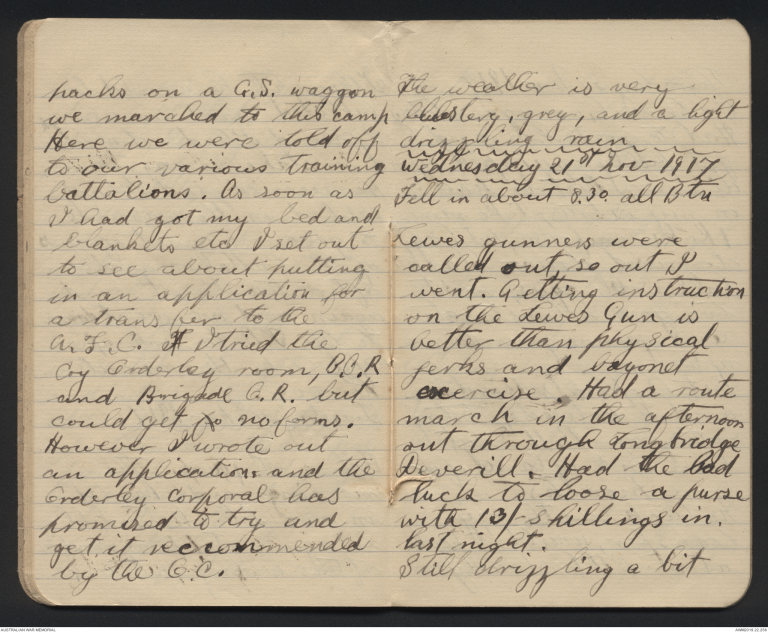 packs on a G.S. waggon
we marched to this camp
Here we were told off
to our various training
battalions. As soon as
I had got my bed and
blankets etc I set out
to see about putting
in an application for
a transfer to the
A.F.C. I tried the
Coy Orderley room, B.O.R
and Brigade O.R. but
could get no forms.
However I wrote out
an application and the
Orderley Corporal has
promised to try and
get it reccommended
by the O.C.
The weather is very
blustery, grey, and a light
drizzling rain
Wednesday 21st Nov 1917
Fell in about 8.30 all Btn
Lewes gunners were
called out, so out I
went. Getting instruction
on the Lewes Gun is
better than physical
jerks and bayonet
excercise. Had a route
march in the afternoon
out through Longbridge
Deverill. Had the bad
luck to loose a purse
with 13/- shillings in.
last night.
Still drizzling a bit
AUSTRALIAN WAR MEMORIAL